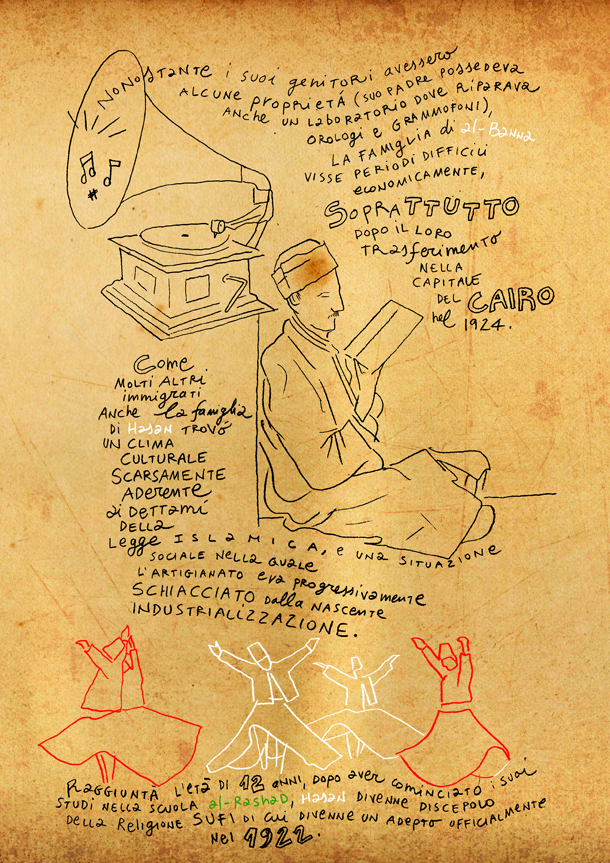 NONOSTANTE i suoi genitori avessero
ALCUNE proprietá (SUO PADRE POSSEDEVA
ANCHE UN LABORATORIO DOVE RIPARAVA
OROLOGI E GRAMMOFONI),
LA FAMIGLIA di al-Banna
VISSE PERIODI DIFFICILI
economicamente,
SOPRATTUTTO
DOPO IL LORO
TRASferimento
NELLA
CAPITALE
DEL CAIRO
nel 1924.
Come
MOLTI ALTRI
immigrati
ANCHE la famiglia
DI Hasan TROVÓ
UN CLIMA
CULTURALE
SCARSAMENTE
ADerente
ai DETTAMI
DELLA
Legge ISLAMICA, e UNA SITUAZIONE
SOCIALE NELLA QUALE
L'ARTIGIANATO era progressivamente
SCHIACCIATO dalla NASCENTE
INDUSTRIALIZZAZIONE.
RAGGIUNTA L'ETÀ DI 12 ANNI, DOPO AVER COMINCIATO i SUOI
STUDI NELLA SCUOLA al-RASHAD, HASAN DIVENNE DISCEPOLO
DELLA Religione SUFI DI CUI DIVENNE UN ADEPTO OFFICIALMENTE
NEL 1922.